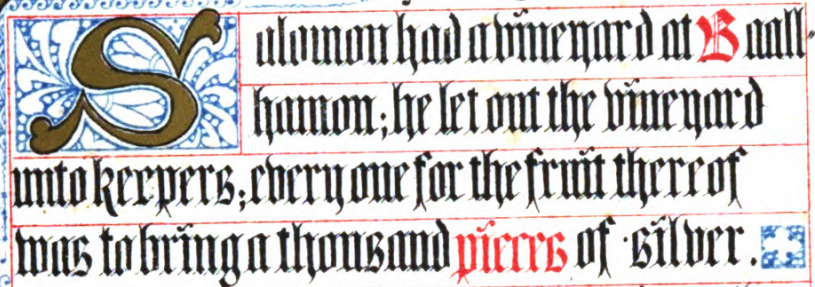 Salomon had a vineyard at Baall-
hamon; he let out the vineyard
unto keepers; every one for the fruit thereof
was to bring a thousand pieces of silver.